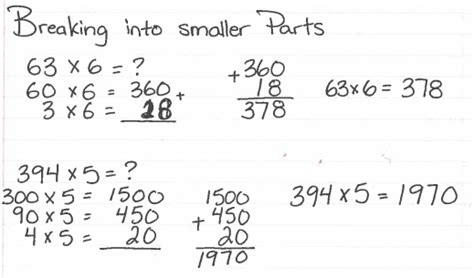 Breaking into smaller Parts
63 x 6 = ?
60 x 6 = 360 +
3 x 6 = 18
+360
18
378
63x6 = 378
394 x 5 = ?
300 x 5 = 1500
90 x 5 = 450
4 x 5 = 20
1500
+ 450
20
1970
394 x 5 = 1970